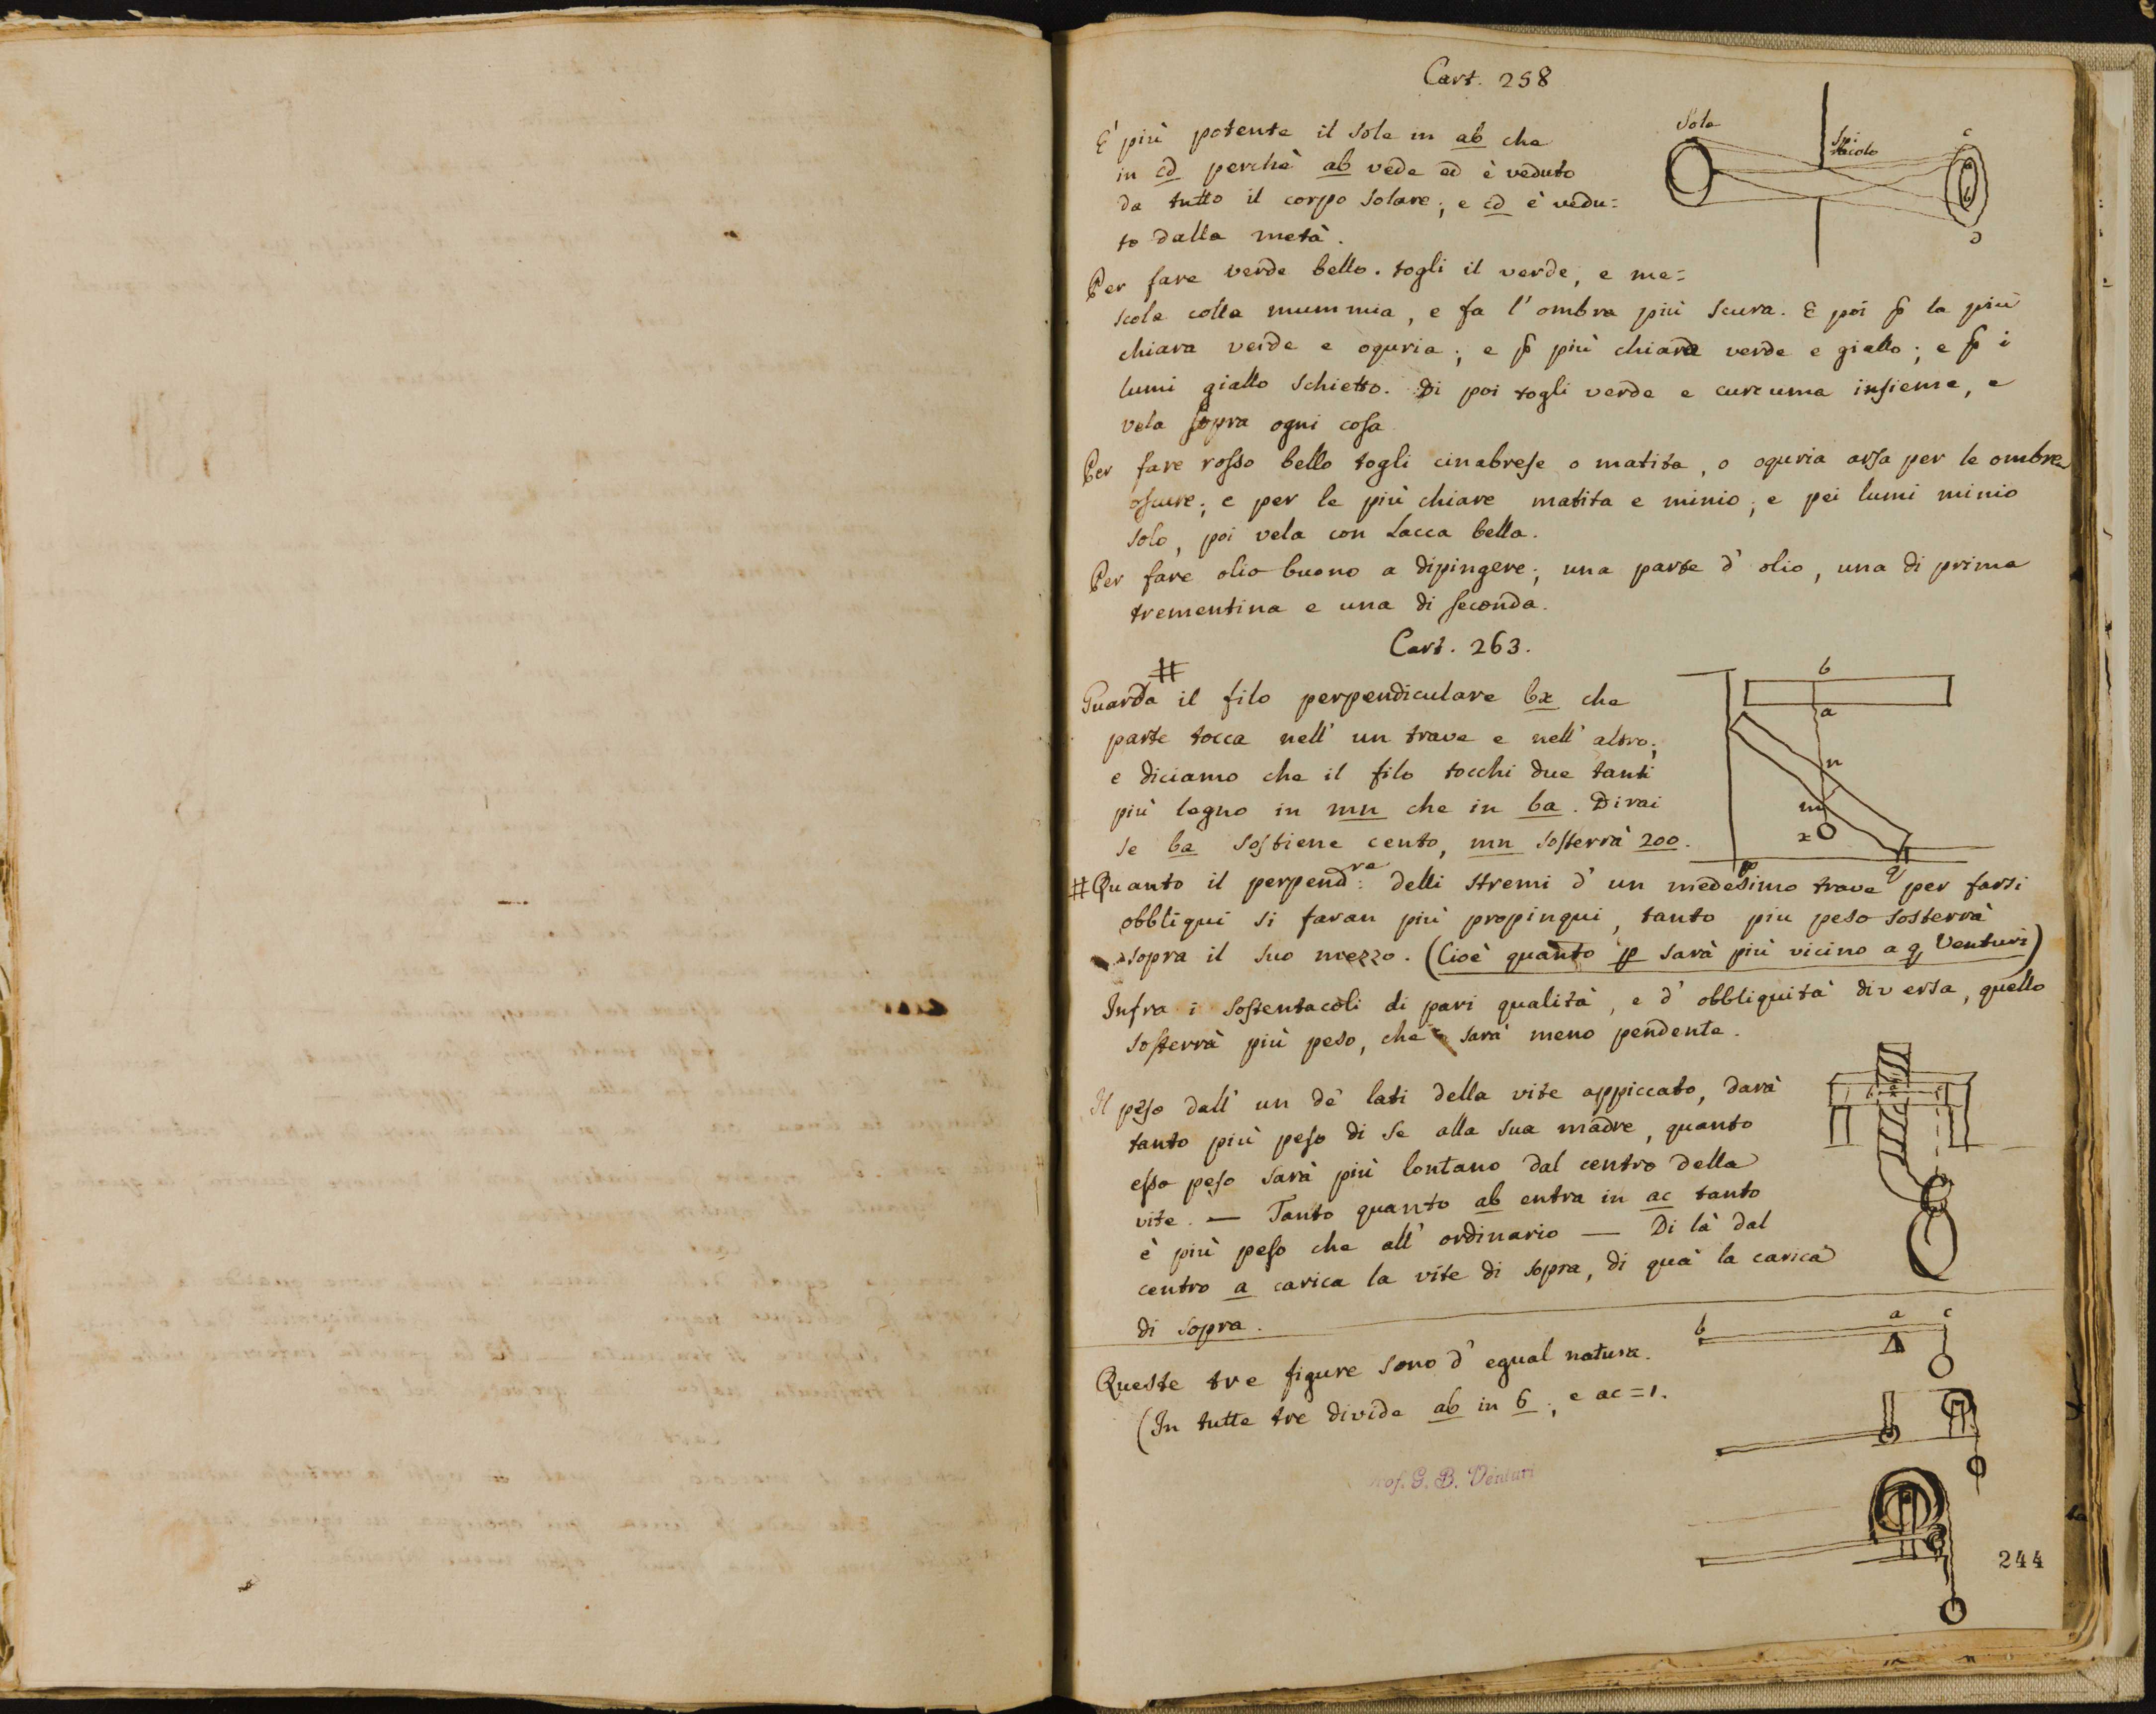 Cart. 258
E' più potente il Sole in ab che
in cd perchè ab vede ed è veduto
da tutto il corpo Solare; e cd è vedu=
to dalla metà.
Sole
Spi
racolo
c
a
b
d
Per fare verde bello. togli il verde, e me=
scola colla mummia, e fa l'ombra più scura. E poi ꝑ la più
chiara verde e oguria; e ꝑ più chiara verde e giallo; e ꝑ i
lumi giallo schietto. Di poi togli verde e curcuma insieme, e
vela sopra ogni cosa
Per fare rosso bello togli cinabrese o matita, o oguria arsa per le ombre
oscure; e per le più chiare matita e minio; e pei lumi minio
solo, poi vela con Lacca bella.
Per fare olio buono a dipingere; una parte d'olio, una di prima
trementina e una di seconda.
Cart. 263.
#
Guarda il filo perpendiculare bx che
parte tocca nell'un trave e nell'altro;
e diciamo che il filo tocchi due tanti
più legno in mn che in ba. Dirai
se ba sostiene cento, mn sosterrà 200.
b
a
n
m
x
p
q
# Quanto il perpend:re delli stremi d'un medesimo trave per farsi
obbliqui si faran più propinqui, tanto piu peso sosterrà
sopra il suo mezzo. (Cioè quanto p sarà più vicino a q Venturi)
Infra i sostentacoli di pari qualità, e d'obbliquità diversa, quello
sosterrà più peso, che sarà meno pendente.
Il peso dall'un de' lati della vite appiccato, darà
tanto più peso di se alla sua madre, quanto
esso peso sarà più lontano dal centro della
vite. — Tanto quanto ab entra in ac tanto
è più peso che all'ordinario — Di là dal
centro a carica la vite di sopra, di quà la carica
di sopra.
b a c
b a c
Queste tre figure sono d'egual natura.
(In tutte tre divide ab in 6; e ac=1.
Prof. G. B. Venturi
244